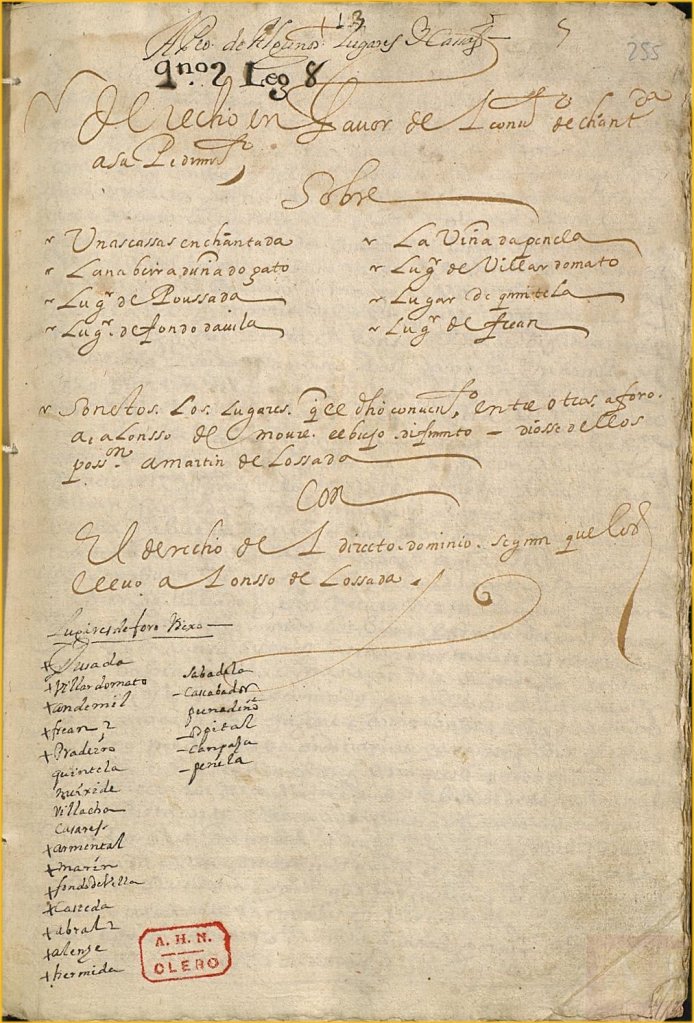 + 13
Apeo de Algunos Lugares
5
255
qnº 2 Leg 8
Derecho en favor de l conuto de chantda
a su Pedimto
Sobre
Unas cassas en chantada
La naberra duña do gato
Lugr de Poussada
Lugr. de fondo dauila
La Viña da penela
Lugr de Villar domato
Lugar de quintela
Lugr de frean
Son estos. Los. Lugares. q el dhó conuento, entre otros. aforo.
a alonsso de moure. el biejo. difunto – diosse dellos
posson a martin de Lossada
Con
El derecho de l directo. dominio. segun que los
lleuo alonsso de Lossada.
Lugares de foro Biexo
+ Pusada
+ Villardomato
+ andemil
+ frean 2
+ Pradeiro
quintela
meixide
Villacha
Casares
+ armental
+ marin
+ fondo de Villa
+ Casteda
+ abral 2
+ alenze
+ hermida
sabadela
– Cascabador
– Spital
– Campaza
– penela
A. H. N.
CLERO